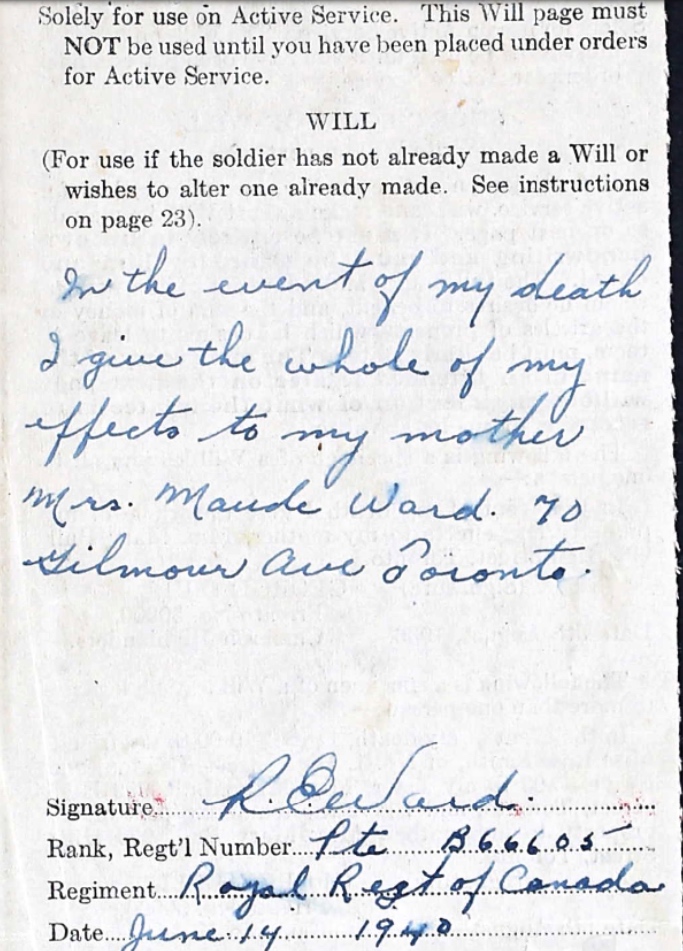 Solely for use on Active Service. This Will page must
NOT be used until you have been placed under orders
for Active Service.
WILL
(For use if the soldier has not already made a Will or
wishes to alter one already made. See instructions
on page 23).
In the event of my death
I give the whole of my
effects to my mother
Mrs. Maude Ward. 70
Gilmour Ave Toronto
Signature R E Ward.
Rank, Regt'l Number Pte B66605
Regiment Royal Regt of Canada
Date June 14 1940